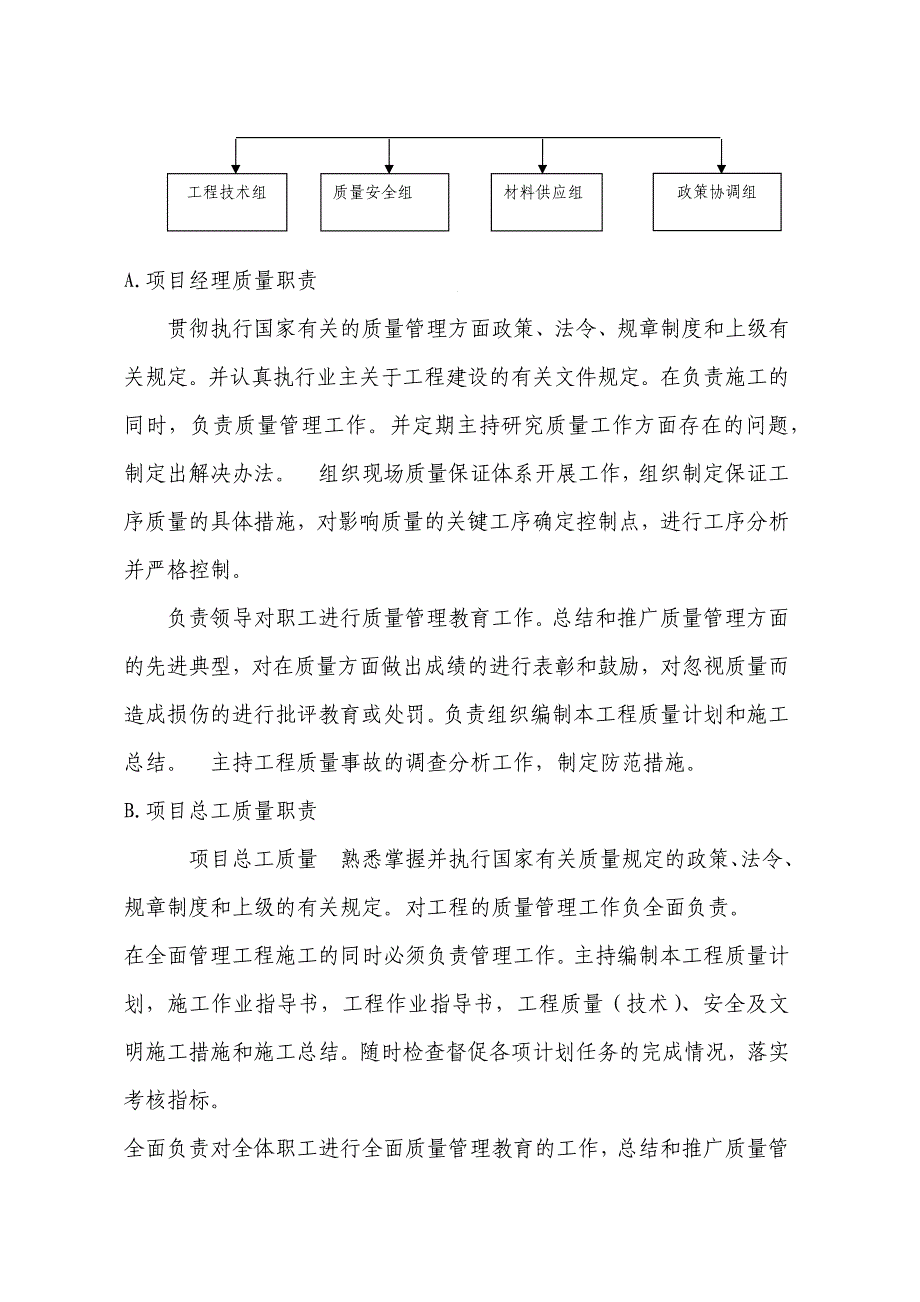 工程技术组 质量安全组 材料供应组 政策协调组
A.项目经理质量职责
贯彻执行国家有关的质量管理方面政策、法令、规章制度和上级有
关规定。并认真执行业主关于工程建设的有关文件规定。在负责施工的
同时，负责质量管理工作。并定期主持研究质量工作方面存在的问题，
制定出解决办法。 组织现场质量保证体系开展工作，组织制定保证工
序质量的具体措施，对影响质量的关键工序确定控制点，进行工序分析
并严格控制。
负责领导对职工进行质量管理教育工作。总结和推广质量管理方面
的先进典型，对在质量方面做出成绩的进行表彰和鼓励，对忽视质量而
造成损伤的进行批评教育或处罚。负责组织编制本工程质量计划和施工
总结。 主持工程质量事故的调查分析工作，制定防范措施。
B.项目总工质量职责
项目总工质量 熟悉掌握并执行国家有关质量规定的政策、法令、
规章制度和上级的有关规定。对工程的质量管理工作负全面负责。
在全面管理工程施工的同时必须负责管理工作。主持编制本工程质量计
划，施工作业指导书，工程作业指导书，工程质量（技术）、安全及文
明施工措施和施工总结。随时检查督促各项计划任务的完成情况，落实
考核指标。
全面负责对全体职工进行全面质量管理教育的工作，总结和推广质量管